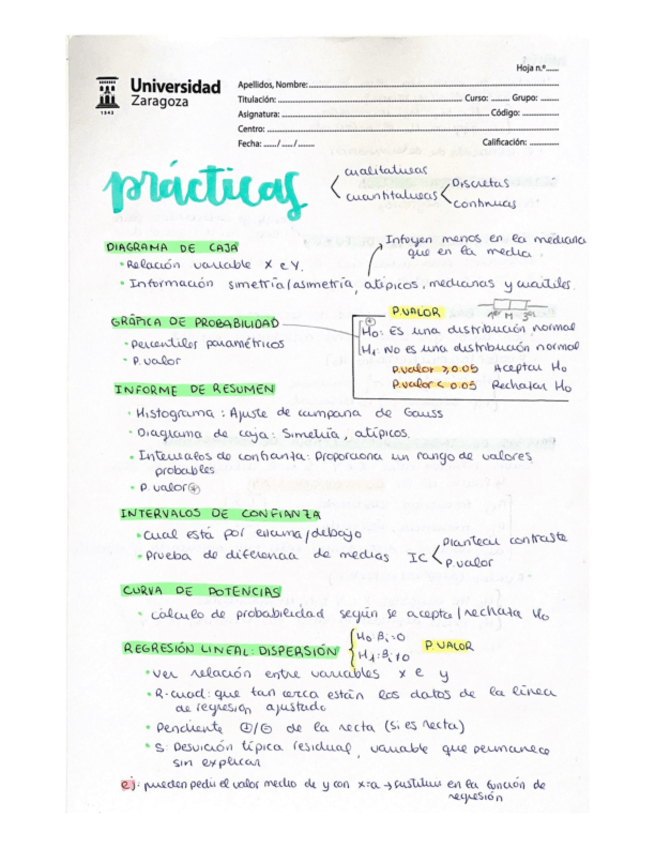 Hoja n.º
Universidad
Zaragoza
1542
Apellidos, Nombre:
Titulación: Curso: Grupo:
Asignatura: Código:
Centro:
Fecha: / / Calificación:
prácticas
cualitativas
cuantitativas
Discretas
continuas
DIAGRAMA DE CAJA
Influyen menos en la mediana
que en la media.
• Relación variable X e Y.
• Información simetría/asimetría, atípicos, medianas y cuartiles.
1er M 3er
GRÁFICA DE PROBABILIDAD
• Percentiles paramétricos
• P.valor
P.VALOR
H0: Es una distribución normal
H1: No es una distribución normal
P.valor ⩾ 0.05 Aceptar H0
P.valor < 0.05 Rechazar H0
INFORME DE RESUMEN
• Histograma: Ajuste de campana de Gauss
• Diagrama de caja: Simetría, atípicos.
• Intervalos de confianza: Proporciona un rango de valores
probables
• P.valor
INTERVALOS DE CONFIANZA
• Cual está por encima/debajo
• Prueba de diferencia de medias IC
Plantear contraste
P.valor
CURVA DE POTENCIAS
• cálculo de probabilidad según se acepta/rechaza H0
REGRESIÓN LINEAL: DISPERSIÓN
H0: βi=0
H1: βi≠0
P.VALOR
• Ver relación entre variables x e y
• R-cuad: que tan cerca están los datos de la línea
de regresión ajustado
• Pendiente ⊕/⊖ de la recta (si es recta)
• S: Desvición típica residual, variable que permanece
sin explicar
ej: pueden pedir el valor medio de y con x=a → sustituir en la función de
regresión